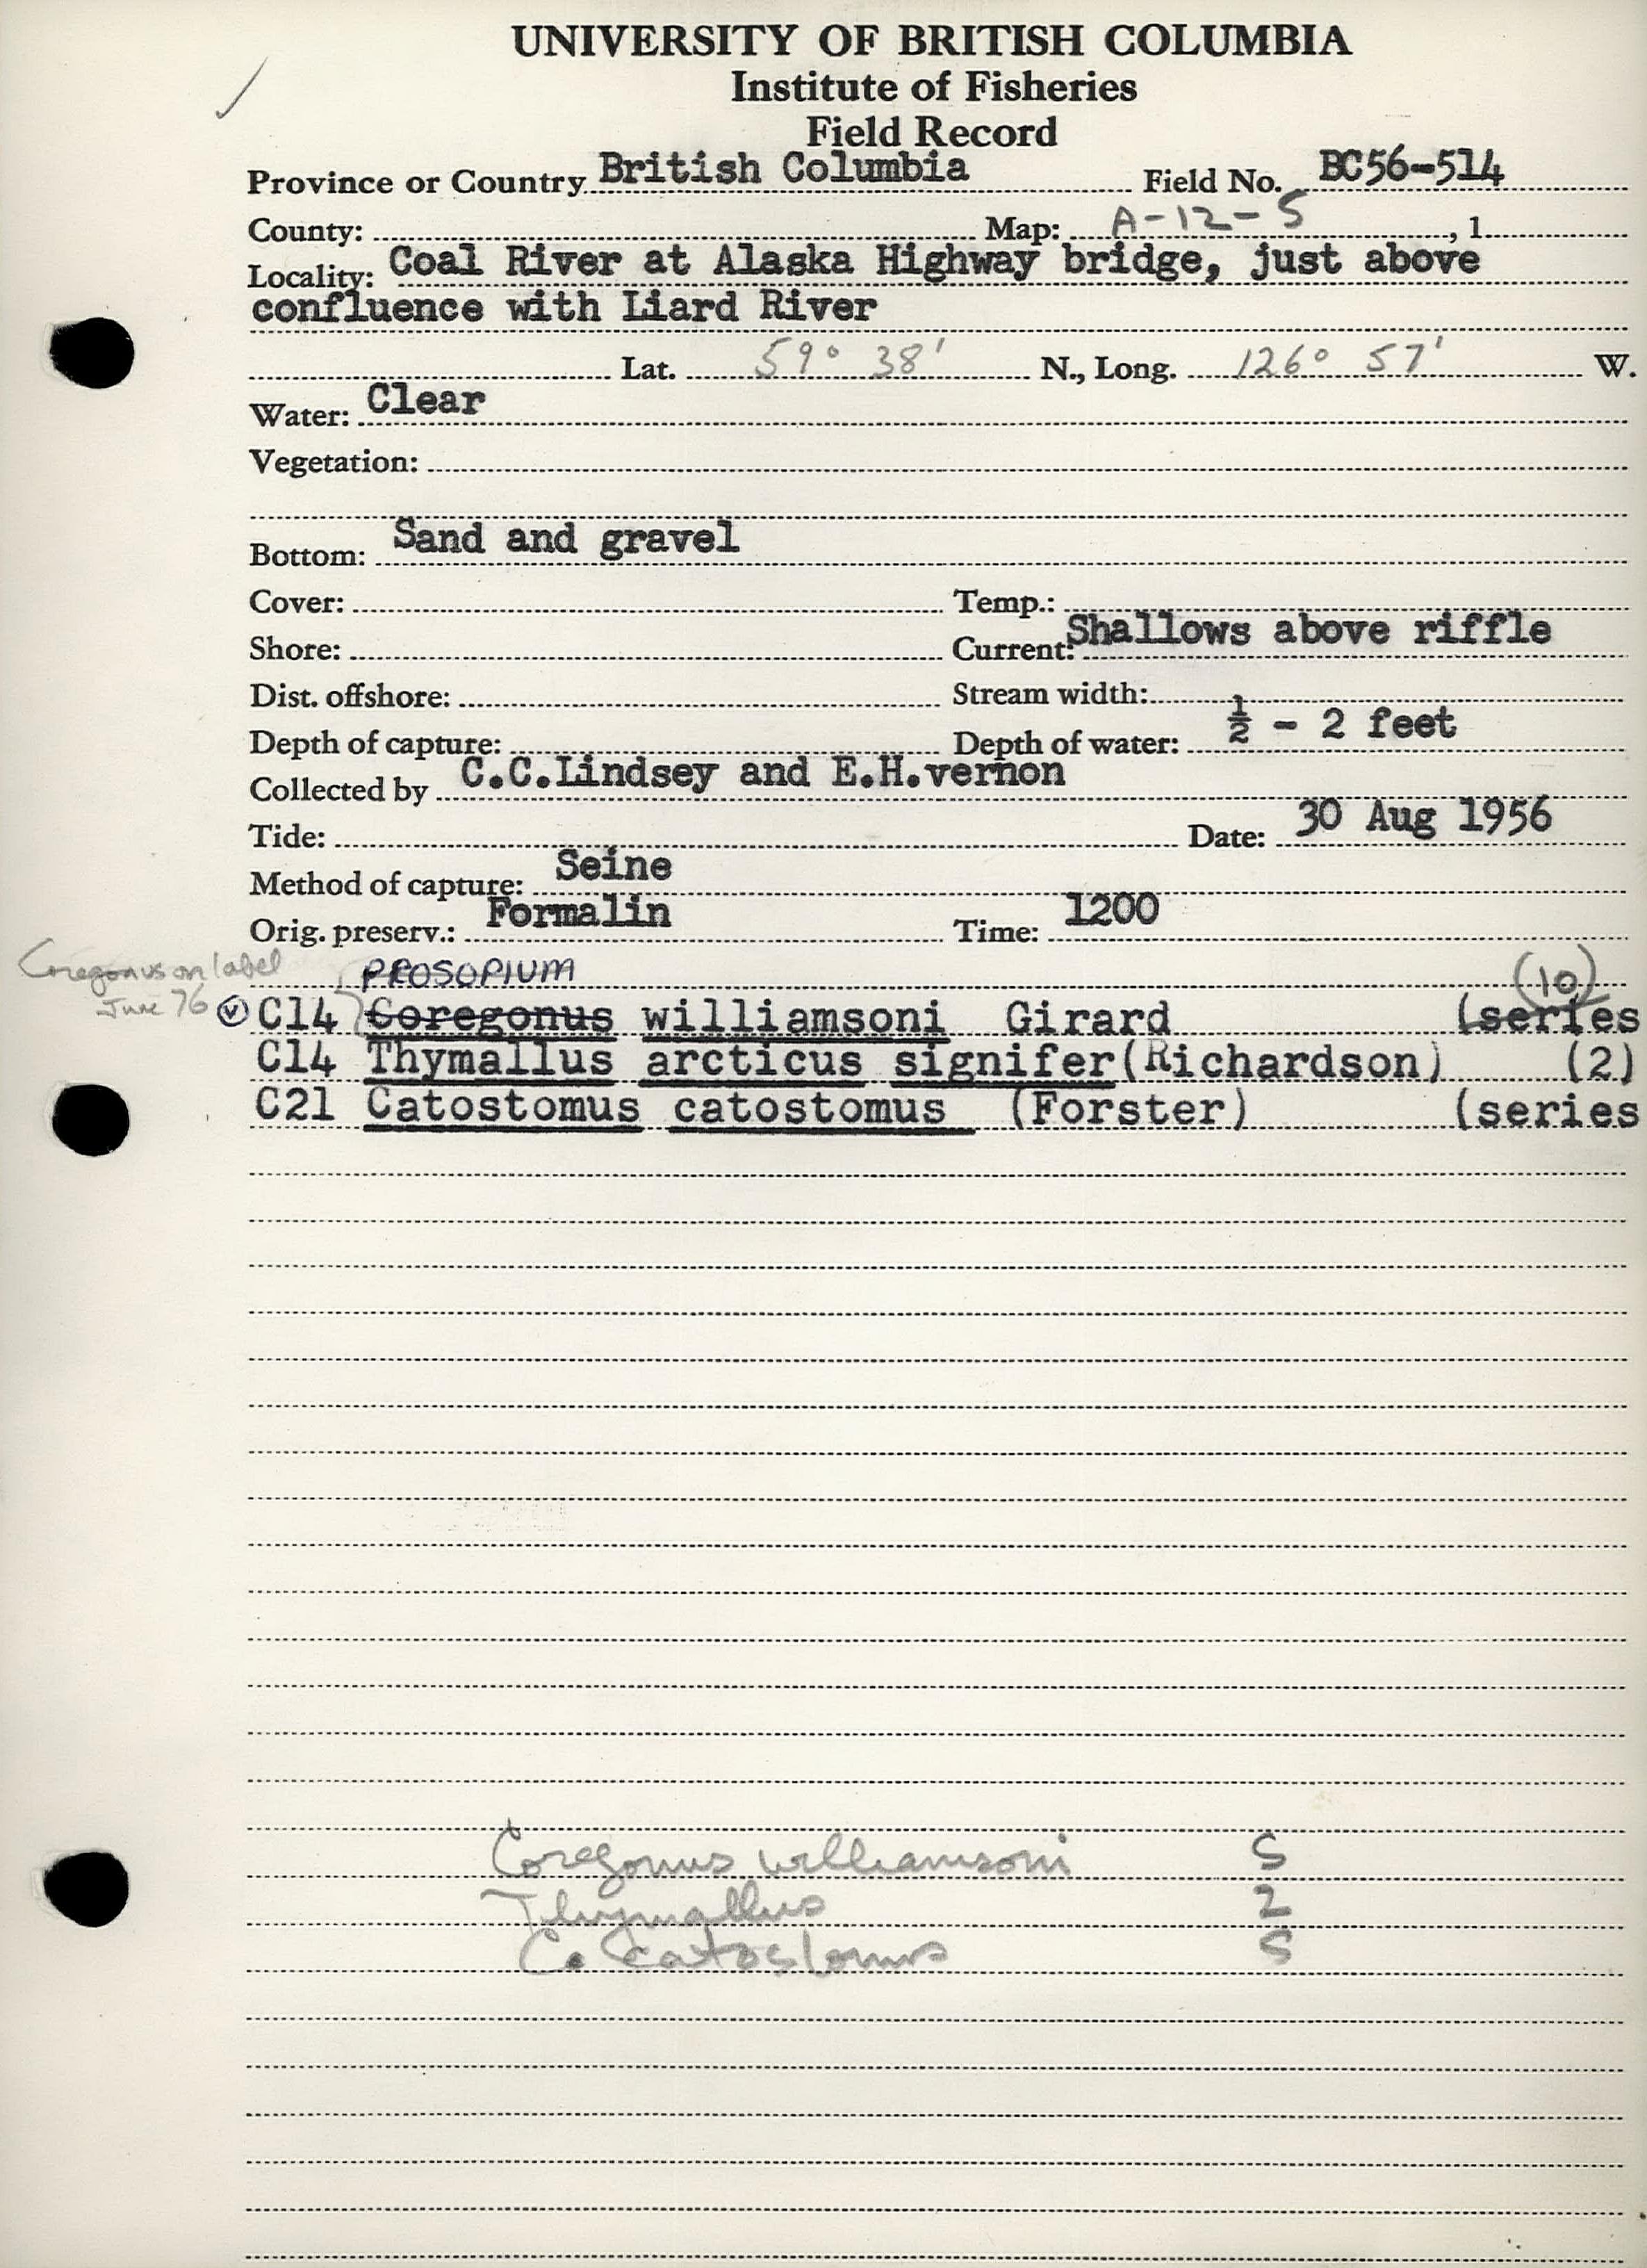 UNIVERSITY OF BRITISH COLUMBIA
Institute of Fisheries
Field Record
Province or Country British Columbia Field No. BC56-514
County: Map: A-12-5, 1
Locality: Coal River at Alaska Highway bridge, just above
confluence with Liard River
Lat. 59° 38' N., Long. 126° 57' W.
Water: Clear
Vegetation:
Bottom: Sand and gravel
Cover: Temp.:
Shore: Current: Shallows above riffle
Dist. offshore: Stream width:
Depth of capture: Depth of water: ½ - 2 feet
Collected by C.C.Lindsey and E.H.vernon
Tide: Date: 30 Aug 1956
Method of capture: Seine
Orig. preserv.: Formalin Time: 1200
Coregonus on label
June 76
PROSOPIUM (10)
C14 Coregonus williamsoni Girard (series
C14 Thymallus arcticus signifer (Richardson) (2)
C21 Catostomus catostomus (Forster) (series
Coregonus williamsoni S
Thymallus 2
C. catostomus S